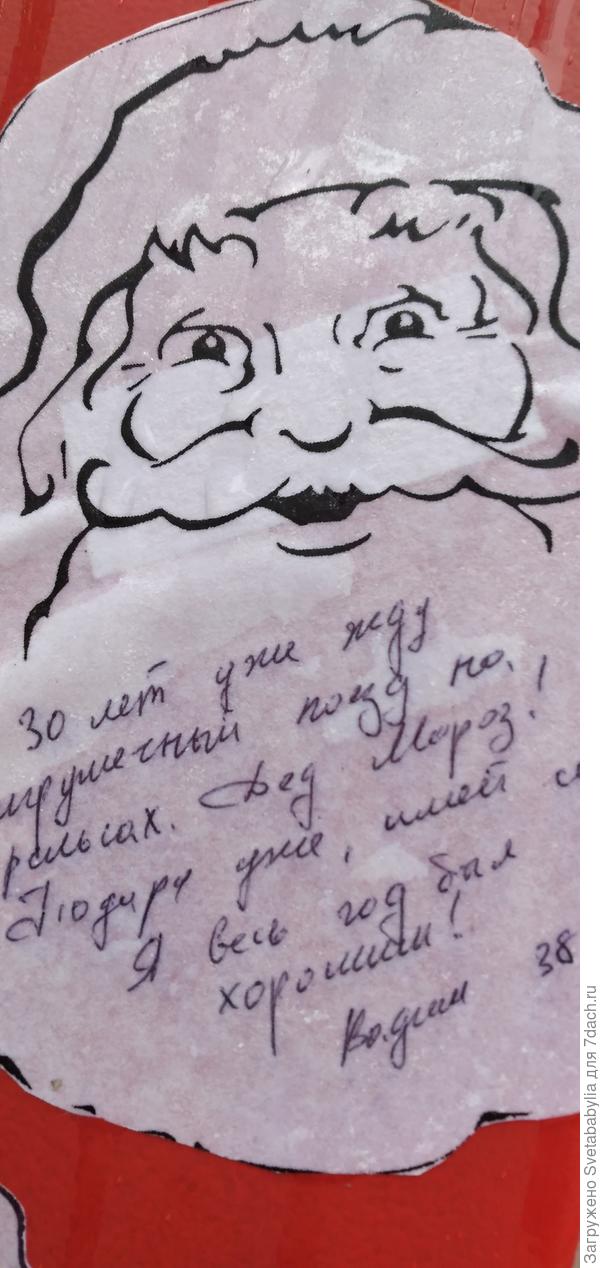 30 лет уже жду
игрушечный поезд на
рельсах. Дед Мороз!
Подари уже, имей
Я весь год был
хорошим!
Вадим 38
Загружено Svetababylia для 7dach.ru